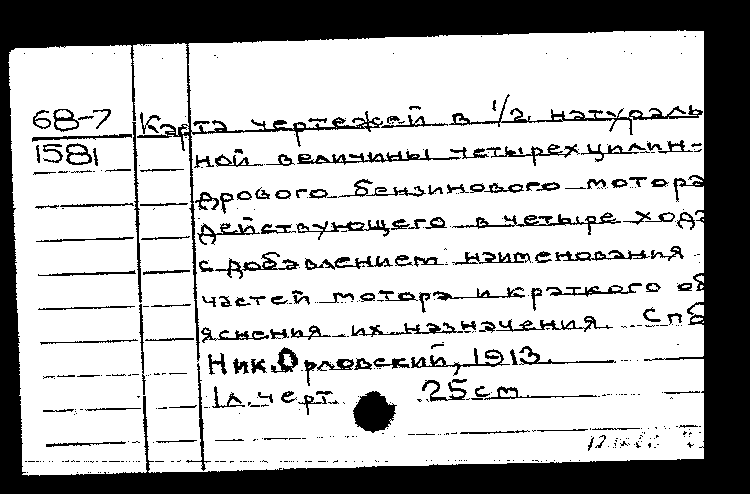 68-7 Карта чертежей в 1/2 натураль
1581 ной величины четырехцилин-
дрового бензинового мотора
действующего в четыре хода
с добавлением наименования
частей мотора и краткого об
яснения их назначения. Спб
Ник. Орловский, 1913.
1 л. черт. 25 cm